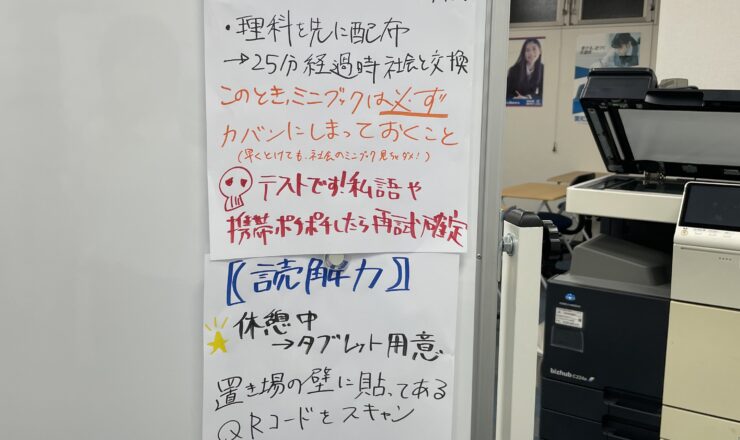 ・理科を先に配布
→25分経過時社会と交換
このとき、ミニブックは必ず
カバンにしまっておくこと
(早くとけても、社会のミニブック見ちゃダメ!)
テストです!私語や
携帯ポチポチしたら再試確定
〖読解力〗
休憩中
→タブレット用意
置き場の壁に貼ってある
QRコードをスキャン
bizhub C224e